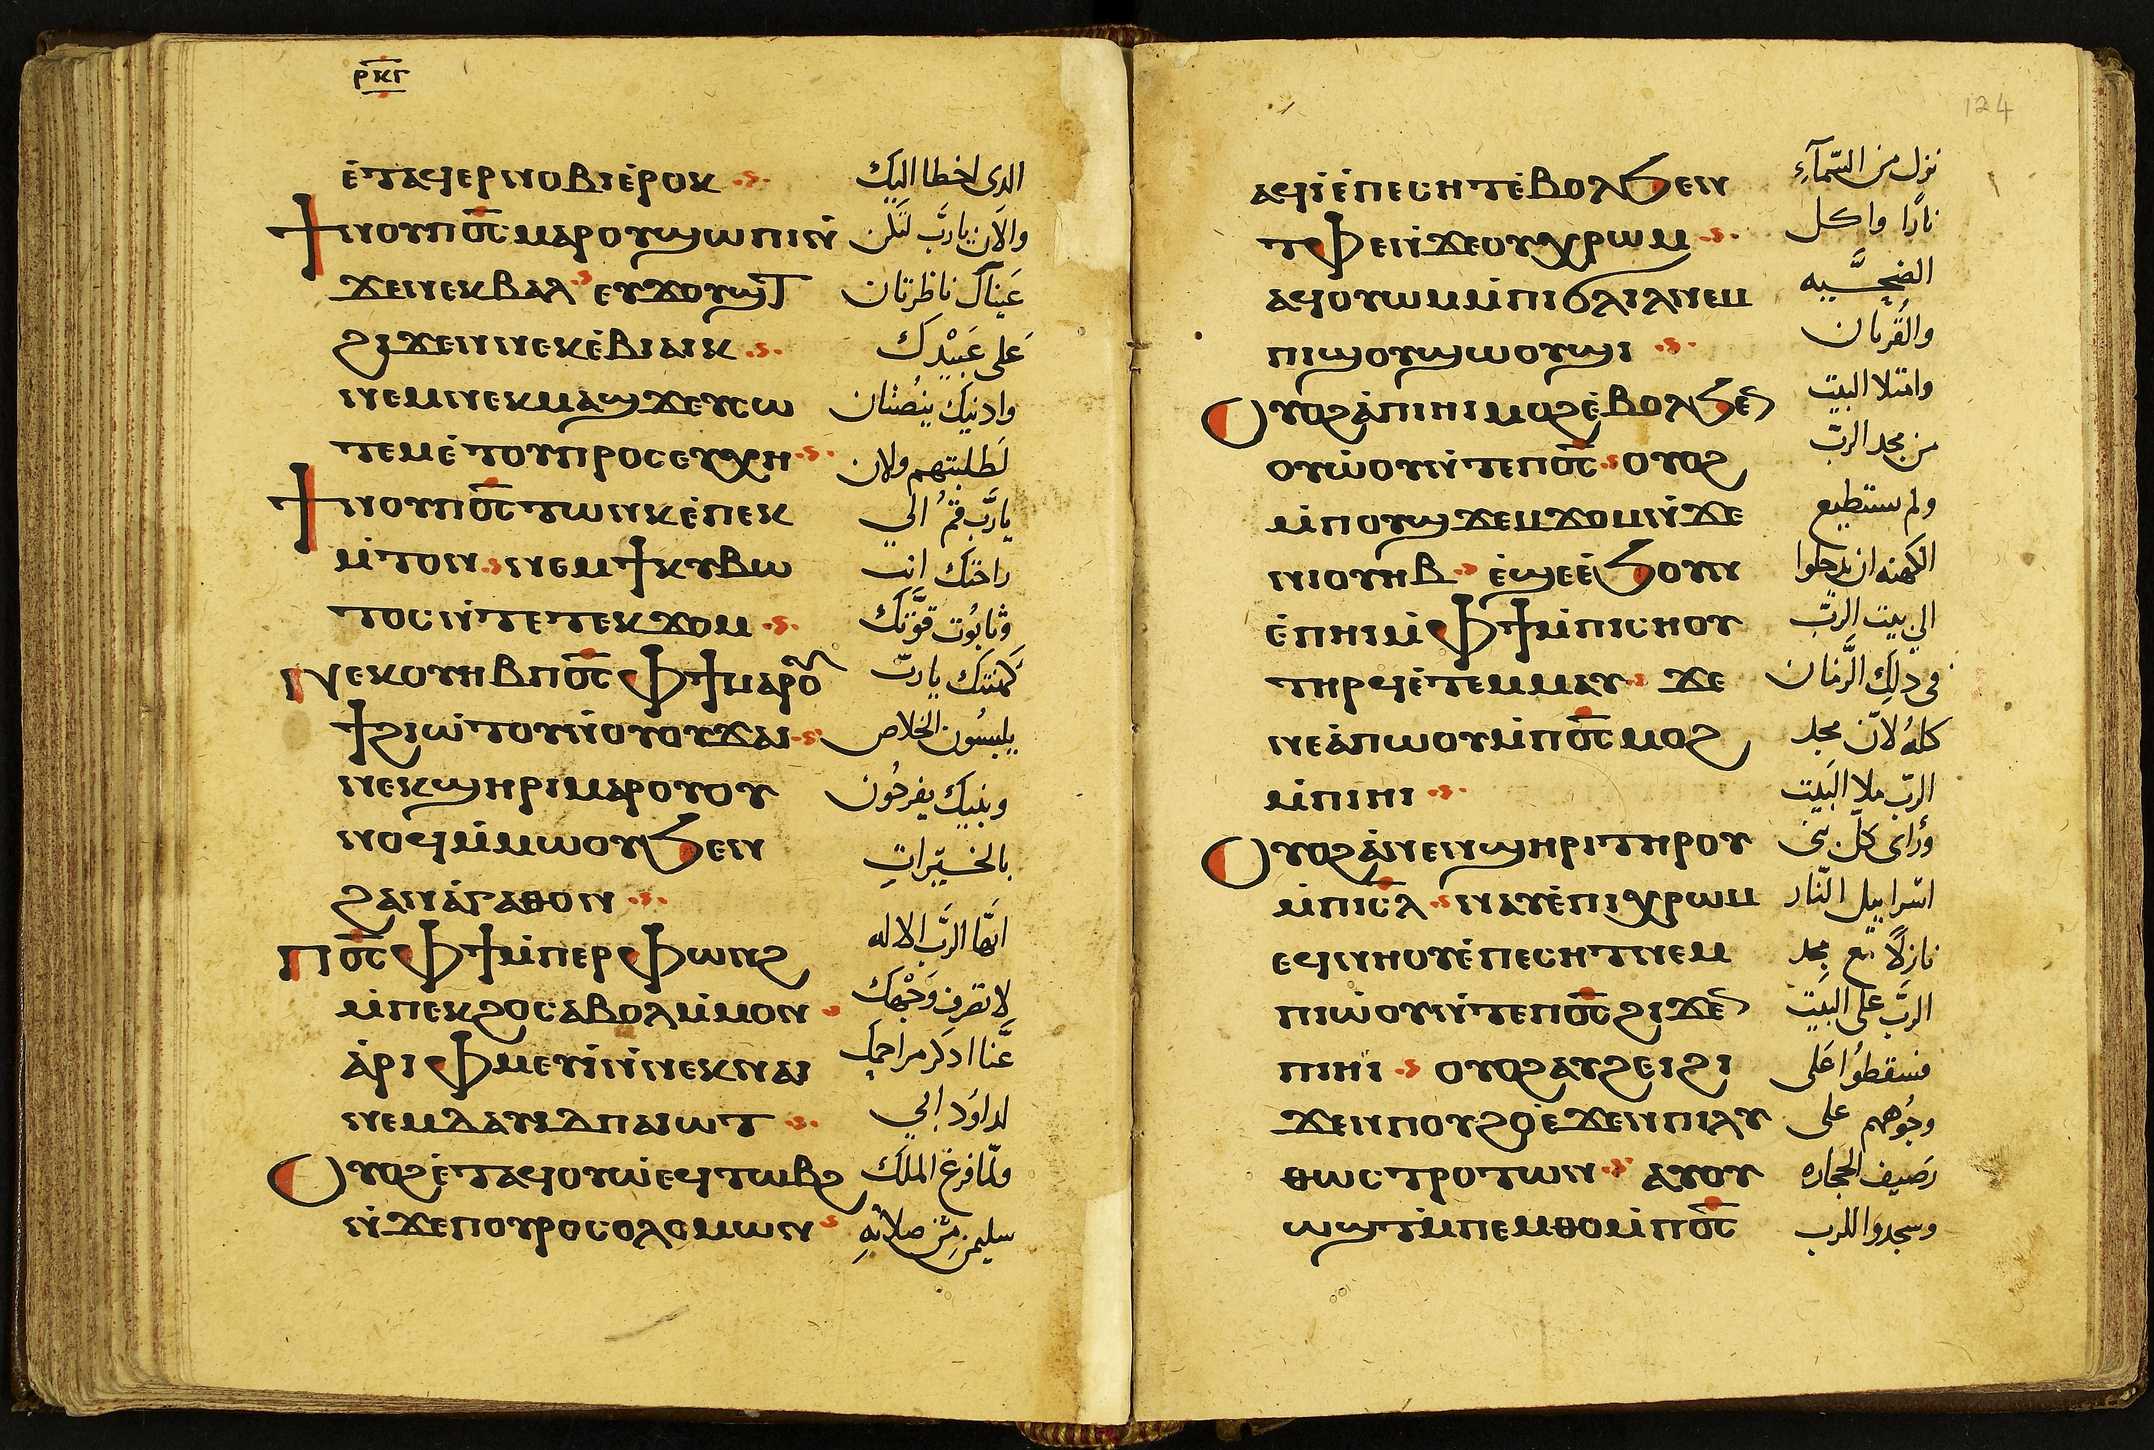 ⲣⲕⲅ
ⲉ̀ⲧⲁϥⲉⲣⲛⲟⲃⲓⲉ̀ⲣⲟⲕ
ϯⲛⲟⲩⲡⲟ̅ⲥ̅ⲙⲁⲣⲟⲩϣⲱⲡⲓⲛ̀
ϫⲉⲛⲉⲕⲃⲁⲗ ⲉⲩϫⲟⲩϣⲧ
ϩⲓϫⲉⲛⲛⲉⲕⲉ̀ⲃⲓⲁⲓⲕ
ⲛⲉⲙⲛⲉⲕⲙⲁϣϫⲉⲩⲥⲱ
ⲧⲉⲙⲉ̀ⲧⲟⲩⲡⲣⲟⲥⲉⲩⲭⲏ
ϯⲛⲟⲩⲡⲟ̅ⲥ̅ⲧⲱⲛⲕⲉ̀ⲡⲉⲕ
ⲙ̀ⲧⲟⲛ ⲛⲉⲙϯⲕⲩⲃⲱ
ⲧⲟⲥⲛ̀ⲧⲉⲧⲉⲕϫⲟⲙ
ⲛⲉⲕⲟⲩⲏⲃⲡⲟ̅ⲥ̅ⲫϯⲙⲁⲣⲟⲩ
ϯϩⲓⲱ̀ⲧⲟⲩⲛ̀ⲟⲩⲟⲩϫⲁⲓ
ⲛⲉⲕϣⲏⲣⲓⲙⲁⲣⲟⲩⲟⲩ
ⲛⲟϥⲙ̀ⲙⲱⲟⲩϧⲉⲛ
ϩⲁⲛⲁ̀ⲅⲁⲑⲟⲛ
ⲡⲟ̅ⲥ̅ⲫϯⲙ̀ⲡⲉⲣⲫⲱⲛϩ
ⲙ̀ⲡⲉⲕϩⲟⲥⲁⲃⲟⲗⲙ̀ⲙⲟⲛ
ⲁ̀ⲣⲓⲫⲙⲉⲩⲓ̀ⲛ̀ⲛⲉⲕⲛⲁⲓ
ⲛⲉⲙⲇⲁⲩⲓⲇⲡⲁⲓⲱⲧ
ⲟⲩⲟϩⲉ̀ⲧⲁϥⲟⲩⲱ̀ⲉϥⲧⲱⲃϩ
ⲛ̀ϫⲉⲡⲟⲩⲣⲟⲥⲟⲗⲟⲙⲱⲛ
الدى اخطا اليك
والان يارب لتكن
عيناك ناظرتان
على عبيدك
وادنيك ينصتان
لطلبتهم ولان
يارب قم الي
راحتك انت
وتابوت قوتك
كهنتك يارب
يلبسون الخلاص
وبنيك يفرحون
بالخيرات
ايها الرب الاله
لا تصرف وجهك
عنا ادكر مراحمك
لداود ابي
ولما فرغ الملك
سليمن من صلاته
124
ⲁϥⲓ̀ⲉ̀ⲡⲉⲥⲏⲧⲉ̀ⲃⲟⲗϧⲉⲛ
ⲧⲫⲉⲛ̀ϫⲉⲟⲩⲭⲣⲱⲙ
ⲁϥⲟⲩⲱⲙⲙ̀ⲡⲓϭⲗⲓⲗⲛⲉⲙ
ⲡⲓϣⲟⲩϣⲱⲟⲩϣⲓ
ⲟⲩⲟϩⲁ̀ⲡⲓⲏⲓⲙⲟϩⲉ̀ⲃⲟⲗϧⲉⲛ
ⲟⲩⲱ̀ⲟⲩⲛ̀ⲧⲉⲡⲟ̅ⲥ̅ ⲟⲩⲟϩ
ⲙ̀ⲡⲟⲩϣϫⲉⲙϫⲟⲙⲛ̀ϫⲉ
ⲛⲓⲟⲩⲏⲃ ⲉ̀ϣⲉⲉ̀ϧⲟⲩⲛ
ⲉ̀ⲡⲏⲓⲙ̀ⲫϯⲙ̀ⲡⲓⲥⲏⲟⲩ
ⲧⲏⲣϥⲉ̀ⲧⲉⲙⲙⲁⲩ ϫⲉ
ⲛⲉⲁ̀ⲡⲱⲟⲩⲙ̀ⲡⲟ̅ⲥ̅ⲙⲟϩ
ⲙ̀ⲡⲓⲏⲓ
ⲟⲩⲟϩⲁ̀ⲛⲉⲛϣⲏⲣⲓⲧⲏⲣⲟⲩ
ⲙ̀ⲡⲓⲥ̅ⲗ̅ ⲛⲁⲩⲉ̀ⲡⲓⲭⲣⲱⲙ
ⲉϥⲛⲏⲟⲩⲉ̀ⲡⲉⲥⲏⲧⲛⲉⲙ
ⲡⲓⲱ̀ⲟⲩⲛ̀ⲧⲉⲡⲟ̅ⲥ̅ϩⲓϫⲉⲛ
ⲡⲓⲏⲓ ⲟⲩⲟϩⲁⲩϩⲉⲓϩⲓ
ϫⲉⲛⲡⲟⲩϩⲟⲉ̀ϫⲉⲛⲡⲓⲗⲩ
ⲑⲱⲥⲧⲣⲟⲧⲱⲛ ⲁⲩⲟⲩ
ⲱϣⲧⲙ̀ⲡⲉⲙⲑⲟⲙ̀ⲡⲟ̅ⲥ̅
نزل من السمآء
نارا واكل
الضحيه
والقربان
وامتلا البيت
من مجد الرب
ولم يستطيع
الكهنه ان يدخلوا
الي بيت الرب
في دلك الزمان
كله لان مجد
الرب ملا البيت
وراى كل بني
اسراييل النار
نازلا مع مجد
الرب على البيت
فسقطوا على
وجوههم على
رصيف الحجاره
وسجدوا للرب